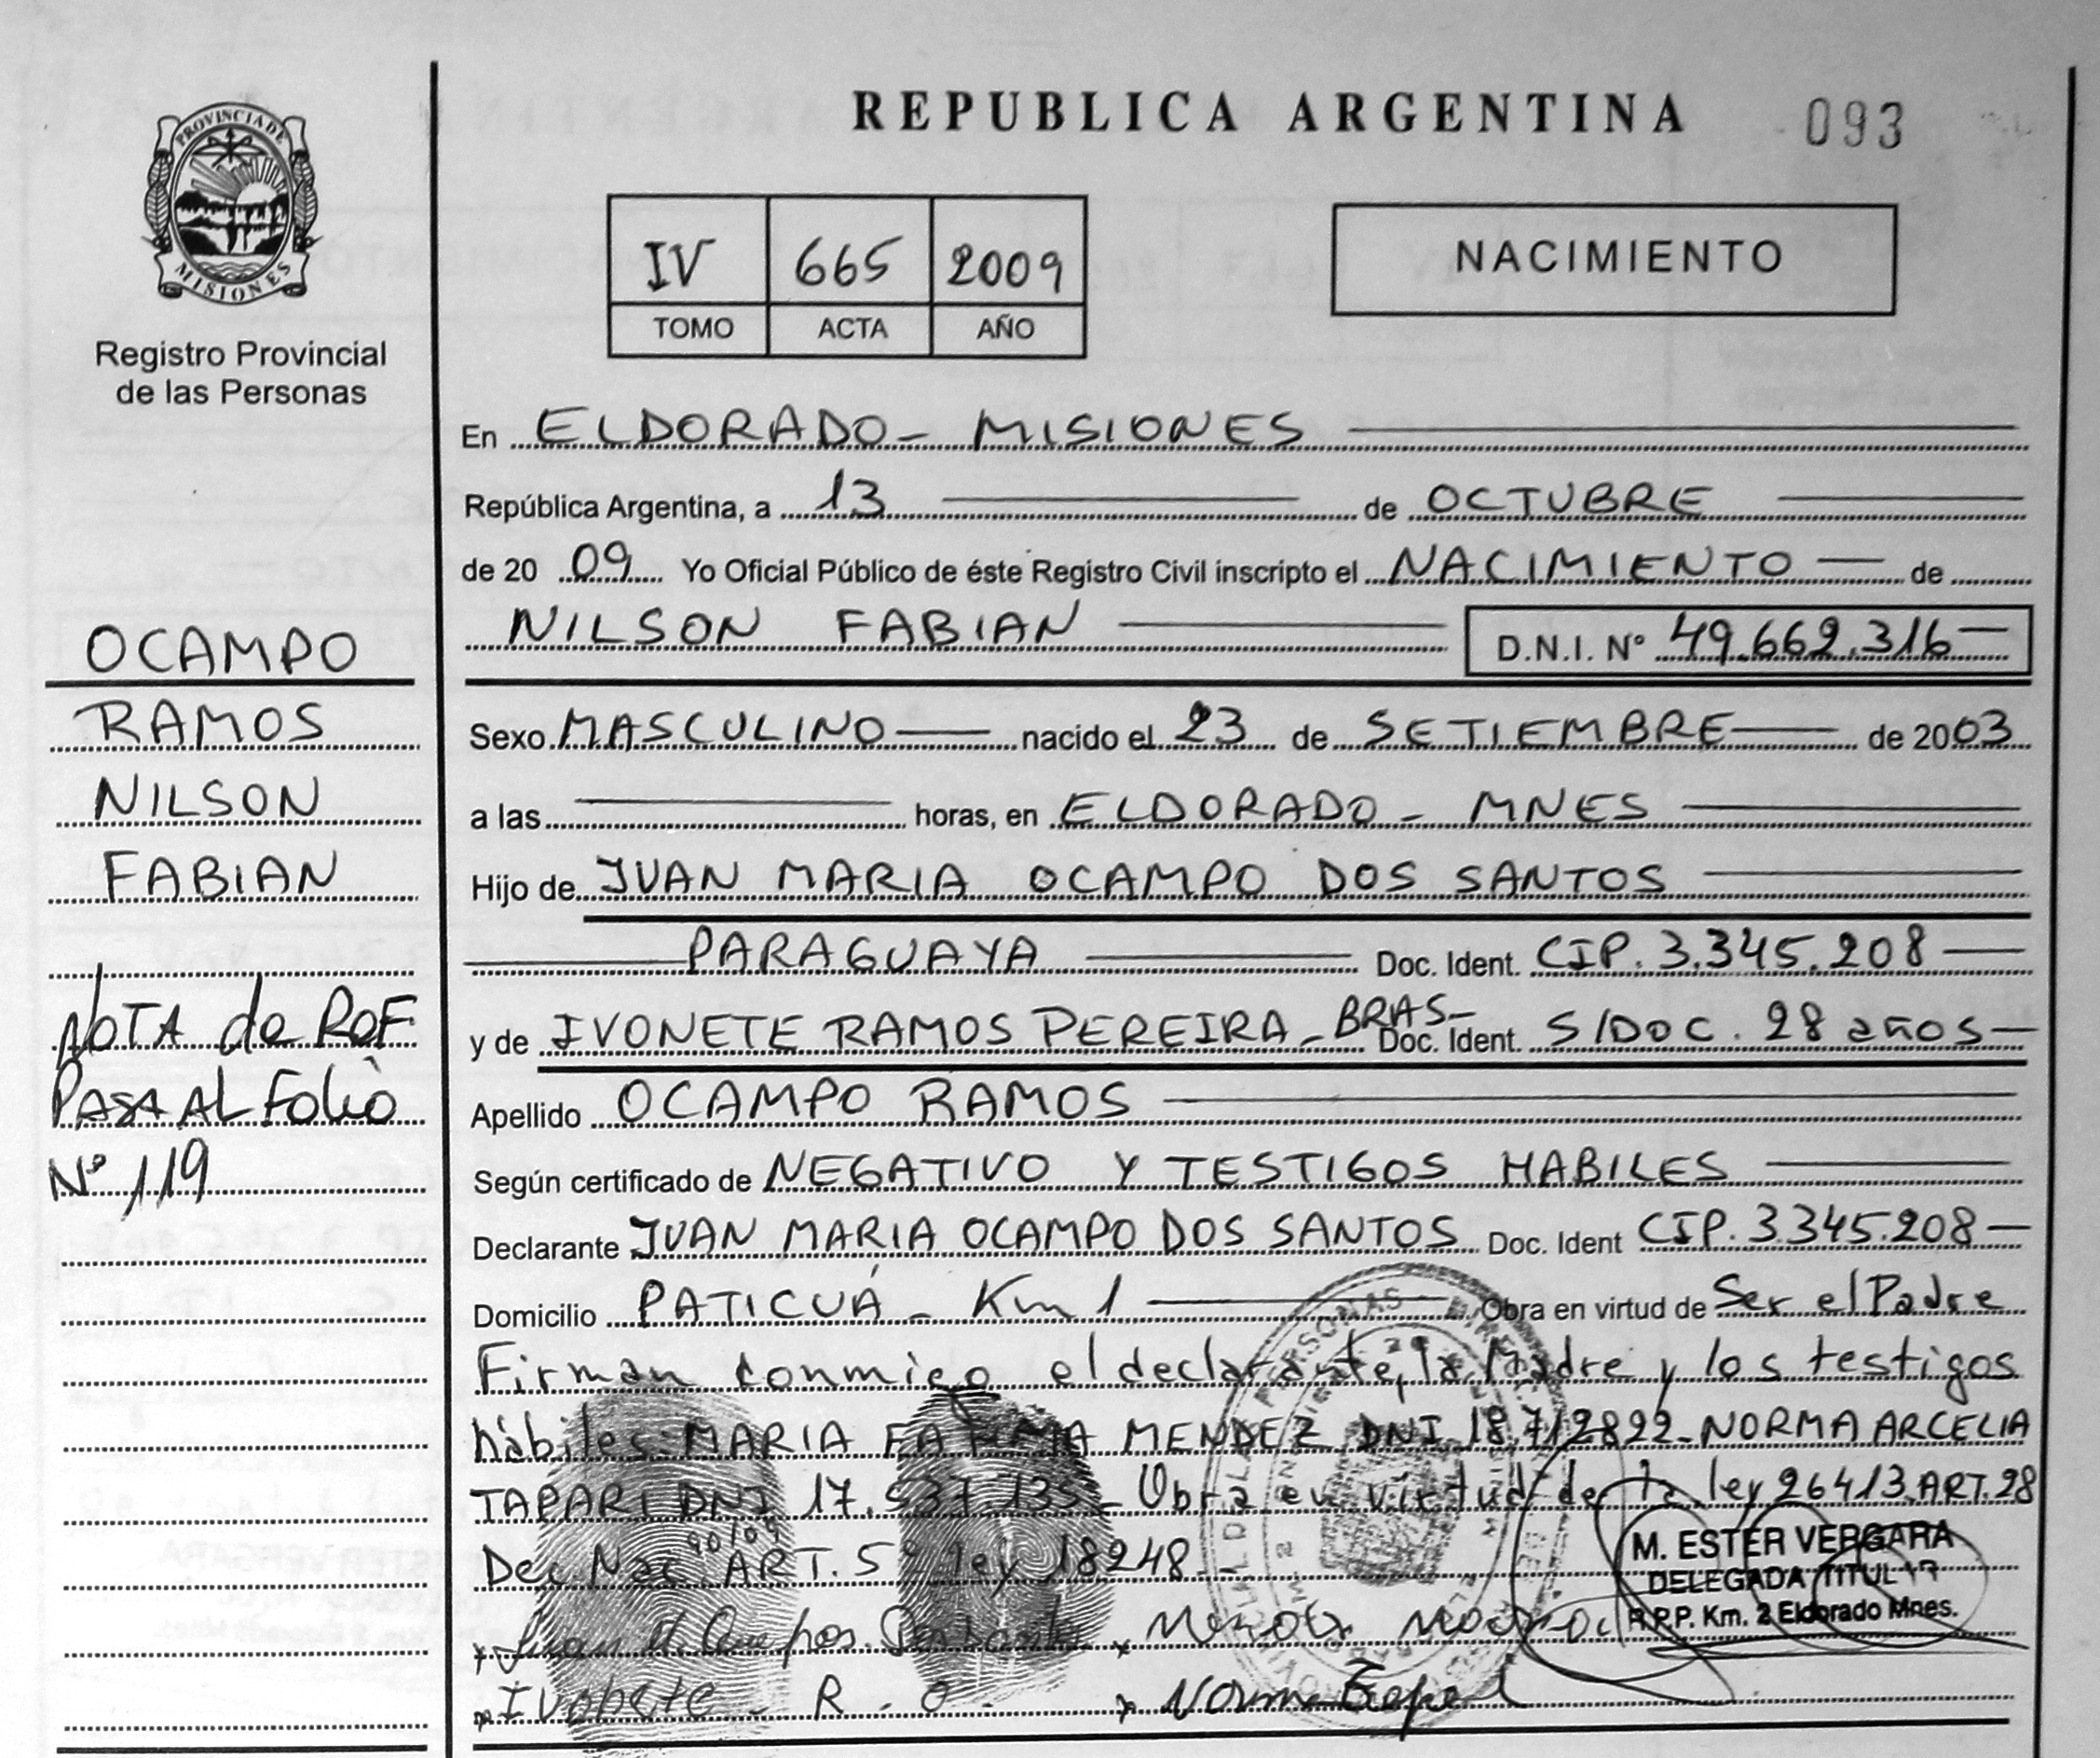 REPUBLICA ARGENTINA 093
PROVINCIA DE
MISIONES
Registro Provincial
de las Personas
IV 665 2009
TOMO ACTA AÑO
NACIMIENTO
En ELDORADO - MISIONES
República Argentina, a 13 de OCTUBRE
de 20 09 Yo Oficial Público de éste Registro Civil inscripto el NACIMIENTO de
NILSON FABIAN D.N.I. Nº 49.662.316
OCAMPO
RAMOS
NILSON
FABIAN
NOTA de REF
PASA AL Folio
Nº 119
Sexo MASCULINO nacido el 23 de SETIEMBRE de 2003
a las horas, en ELDORADO - MNES
Hijo de JUAN MARIA OCAMPO DOS SANTOS
PARAGUAYA Doc. Ident. CIP. 3.345.208
y de IVONETE RAMOS PEREIRA - BRAS- Doc. Ident. S/DOC. 28 años
Apellido OCAMPO RAMOS
Según certificado de NEGATIVO Y TESTIGOS HABILES
Declarante JUAN MARIA OCAMPO DOS SANTOS Doc. Ident CIP. 3.345.208
Domicilio PATICUÁ - Km 1 Obra en virtud de Ser el Padre
Firman conmigo el declarante, la Madre y los testigos
hábiles: MARIA FATIMA MENDEZ DNI 18.712822 - NORMA ARCELIA
TAPARI DNI 17.537.135 - Obra en virtud de la ley 26413. ART. 28
Dec. Nac. 90/09 ART. 5º ley 18248
M. ESTER VERGARA
DELEGADA TITULAR
R.P.P. Km. 2 Eldorado Mnes.
Juan M.
Ivonete - R - O.
Norma